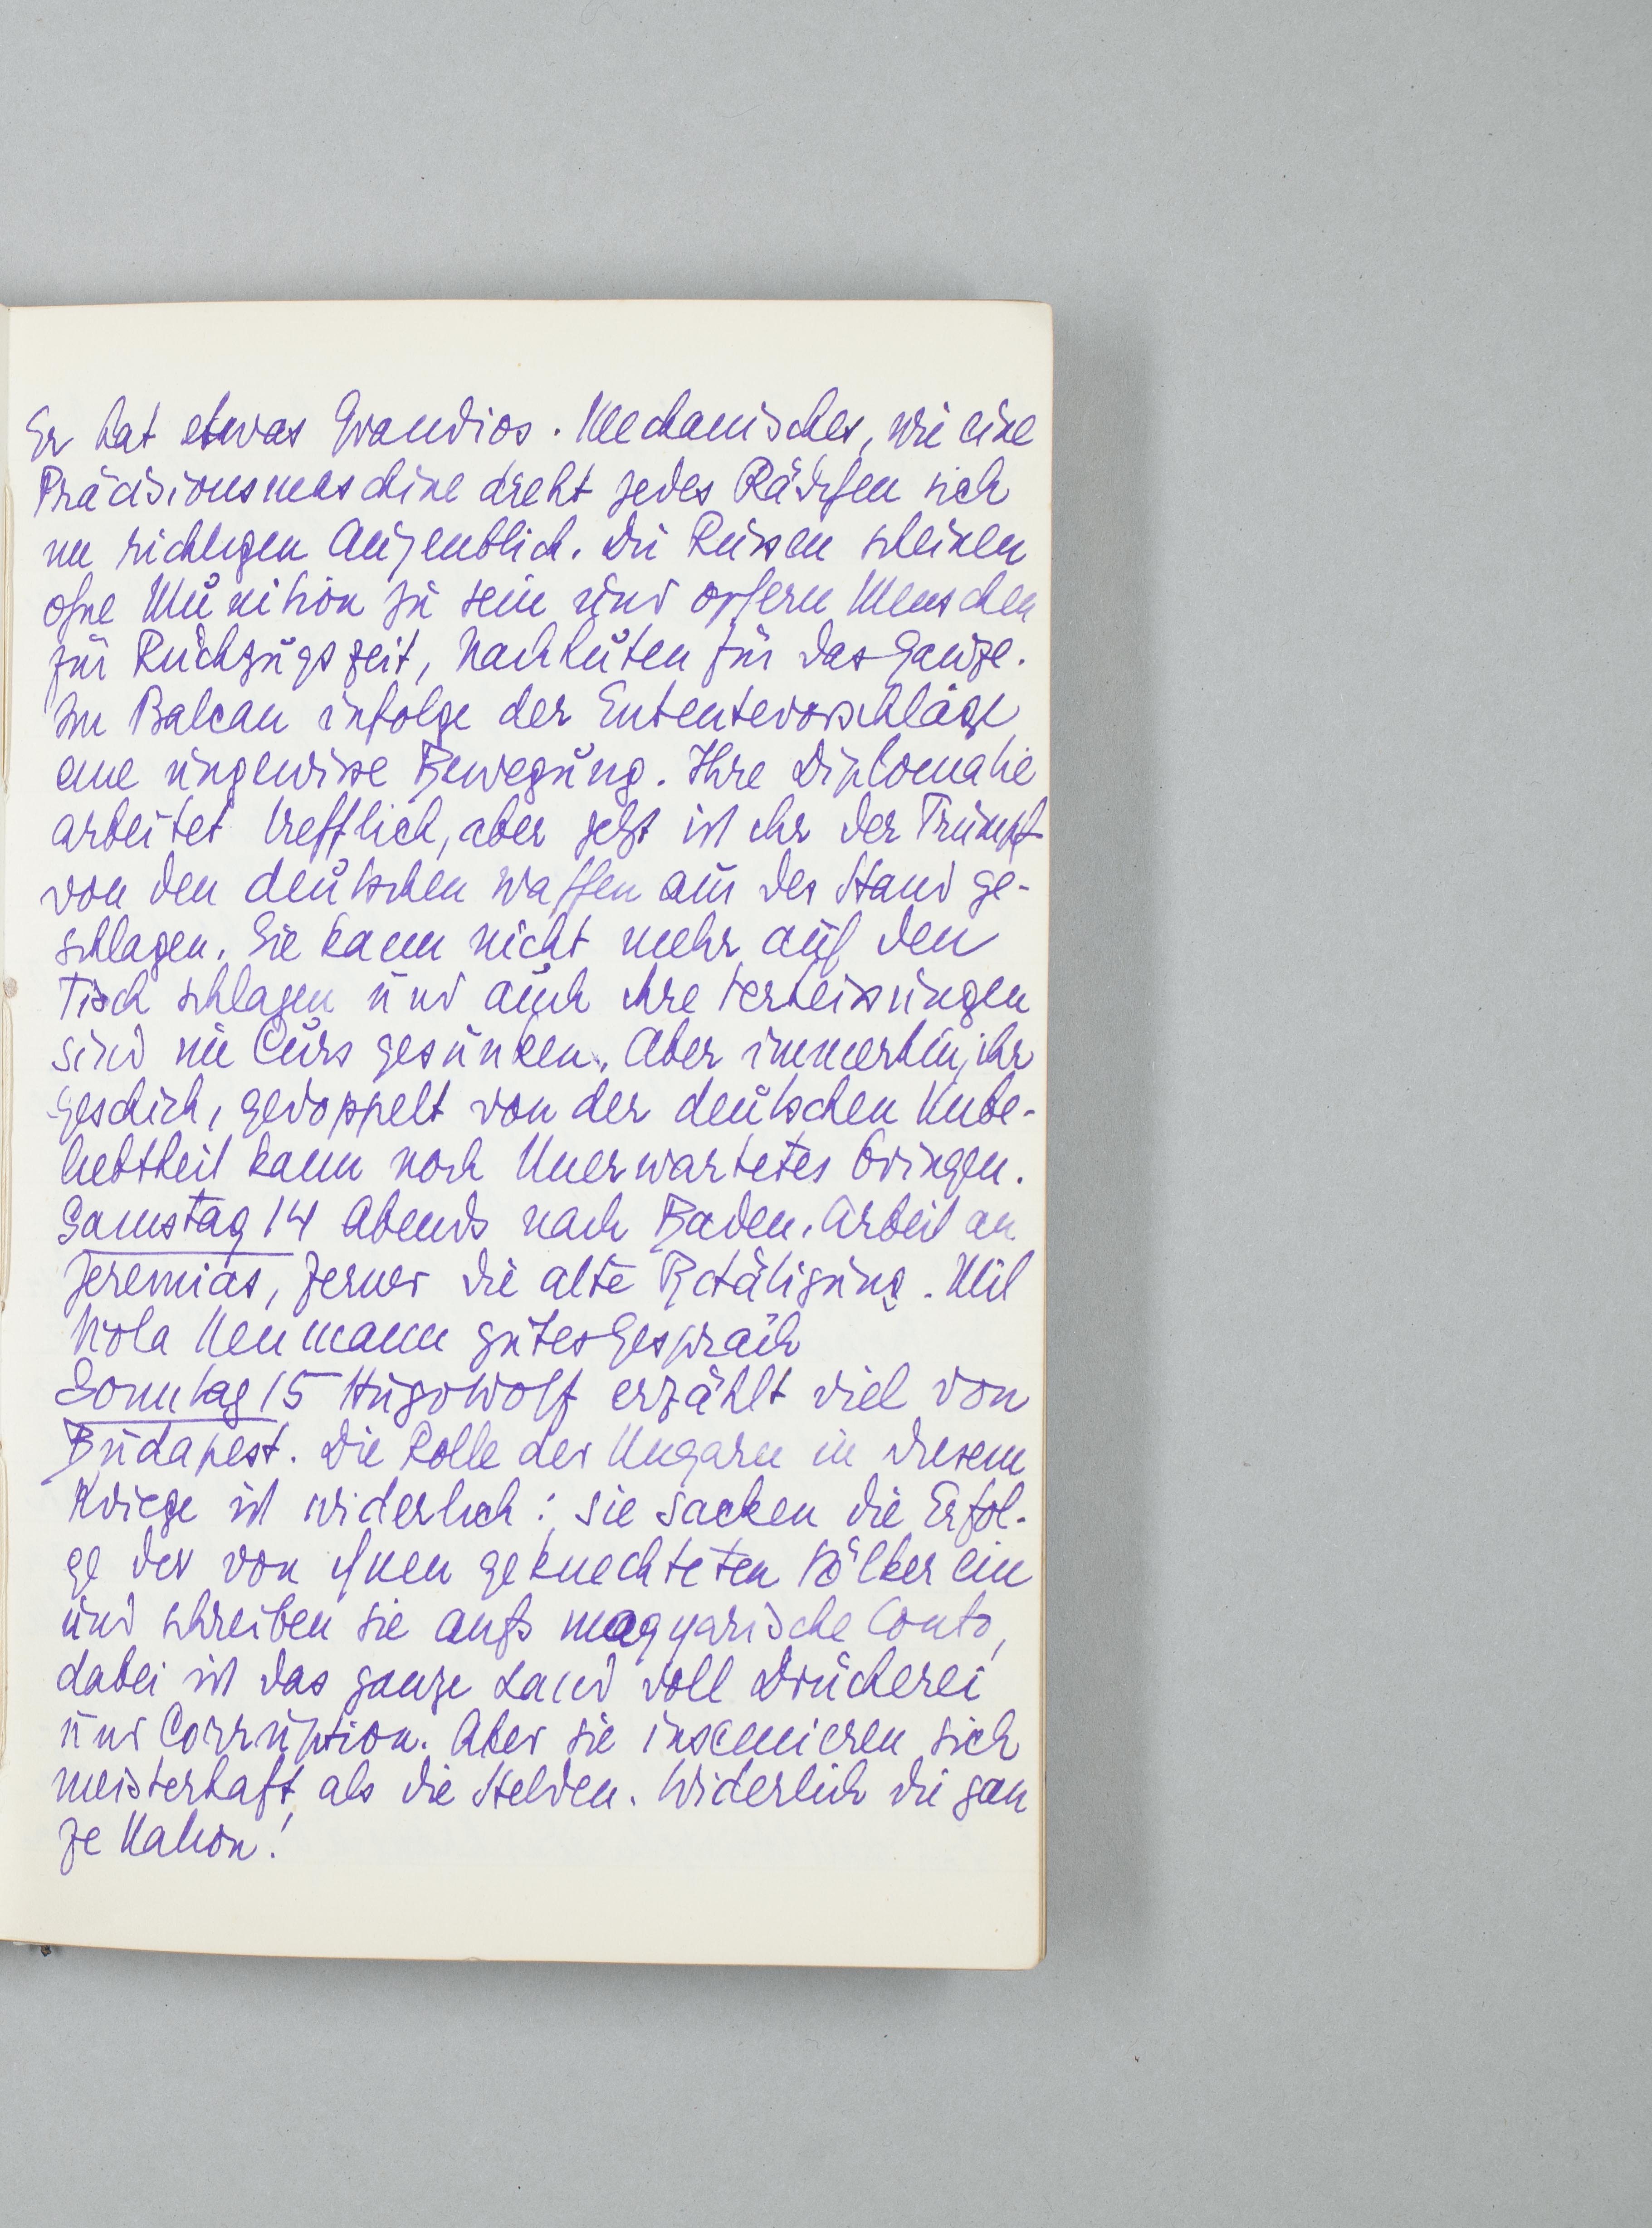 Er hat etwas Grandios. Mechanisches, wie eine
Präcisionsmaschine dreht jedes Rädchen sich
im richtigen Augenblick. Die Russen scheinen
ohne Munition zu sein und opfern Menschen
für Rückzugszeit, Nachhuten für das Ganze.
Im Balcan infolge der Ententevorschläge
eine ungewisse Bewegung. Ihre Diplomatie
arbeitet trefflich, aber jetzt ist ihr der Trumpf
von den deutschen Waffen aus der Hand ge-
schlagen. Sie kann nicht mehr auf den
Tisch schlagen und auch ihre Verheissungen
sind im Curs gesunken. Aber immerhin, ihr
Geschick, gedoppelt von der deutschen Unbe-
liebtheit kann noch Unerwartetes bringen.
Samstag 14 Abends nach Baden. Arbeit an
Jeremias, ferner die alte Betätigung. Mit
Neumann gutes Gespräch
Sonntag 15 Hugo Wolf erzählt viel von
Budapest. Die Rolle der Ungarn in diesem
Kriege ist widerlich: sie sacken die Erfol-
ge der von ihnen geknechteten Völker ein
und schreiben sie aufs magyarische Conto,
dabei ist das ganze Land voll Drückerei
und Corruption. Aber sie inscenieren sich
meisterhaft als die Helden. Widerlich die gan
ze Nation!